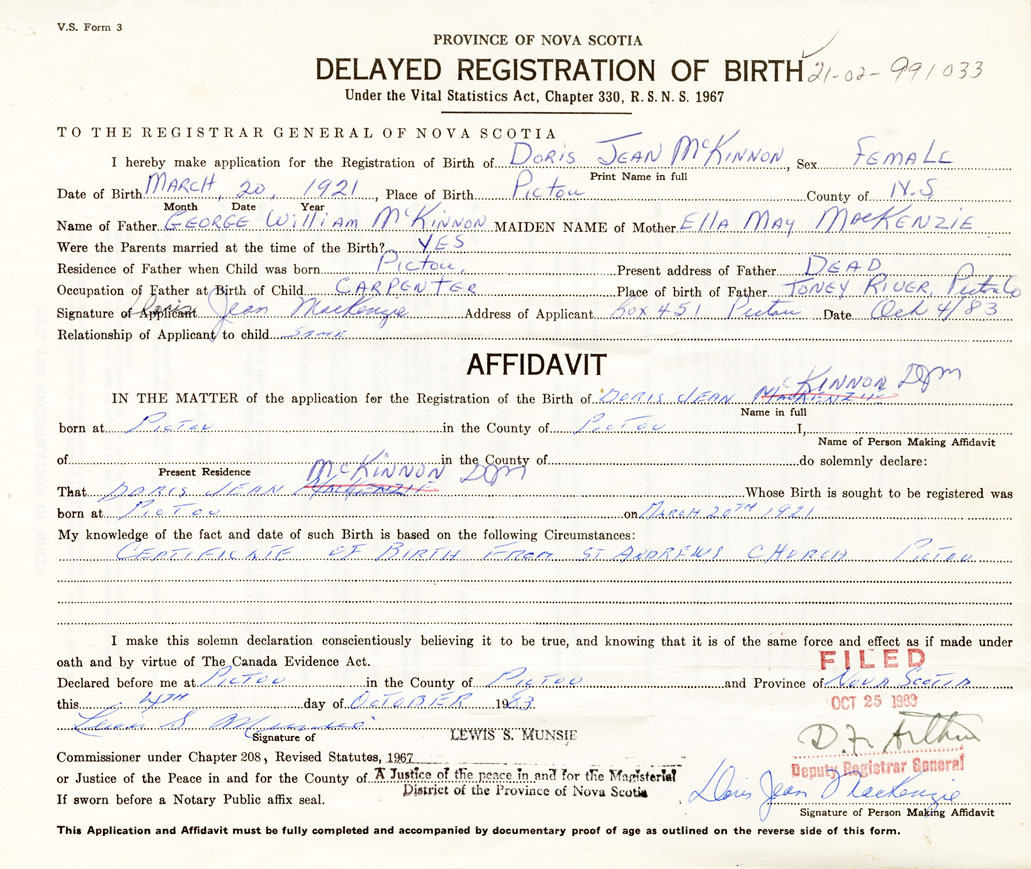 V.S. Form 3
PROVINCE OF NOVA SCOTIA
DELAYED REGISTRATION OF BIRTH 21-02-991033
Under the Vital Statistics Act, Chapter 330, R.S.N.S. 1967
TO THE REGISTRAR GENERAL OF NOVA SCOTIA
I hereby make application for the Registration of Birth of DORIS JEAN McKINNON, Sex FEMALE
Print Name in full
Date of Birth MARCH, 20, 1921, Place of Birth Pictou County of N.S
Month Date Year
Name of Father GEORGE William McKinnon MAIDEN NAME of Mother Ella May MacKENZIE
Were the Parents married at the time of the Birth? YES
Residence of Father when Child was born Pictou, Present address of Father DEAD
Occupation of Father at Birth of Child CARPENTER Place of birth of Father TONEY RIVER, Pictou Co
Signature of Applicant Doris Jean MacKenzie Address of Applicant Box 451 Pictou Date Oct 4/83
Relationship of Applicant to child SAME
AFFIDAVIT
IN THE MATTER of the application for the Registration of the Birth of DORIS JEAN MacKENZIE McKINNON DJM
Name in full
born at PICTOU in the County of PICTOU I,
Name of Person Making Affidavit
of in the County of do solemnly declare:
Present Residence
That DORIS JEAN MacKENZIE McKINNON DJM Whose Birth is sought to be registered was
born at PICTOU on MARCH 20TH 1921
My knowledge of the fact and date of such Birth is based on the following Circumstances:
CERTIFICATE OF BIRTH FROM ST ANDREWS CHURCH PICTOU
I make this solemn declaration conscientiously believing it to be true, and knowing that it is of the same force and effect as if made under
oath and by virtue of The Canada Evidence Act.
FILED
Declared before me at PICTOU in the County of PICTOU and Province of NOVA SCOTIA
this 4TH day of OCTOBER 1983.
OCT 25 1983
Lewis S Munsie
Signature of LEWIS S. MUNSIE
D.F. Arthur
Commissioner under Chapter 208, Revised Statutes, 1967
Deputy Registrar General
or Justice of the Peace in and for the County of A Justice of the peace in and for the Magisterial
District of the Province of Nova Scotia
Doris Jean MacKenzie
If sworn before a Notary Public affix seal.
Signature of Person Making Affidavit
This Application and Affidavit must be fully completed and accompanied by documentary proof of age as outlined on the reverse side of this form.